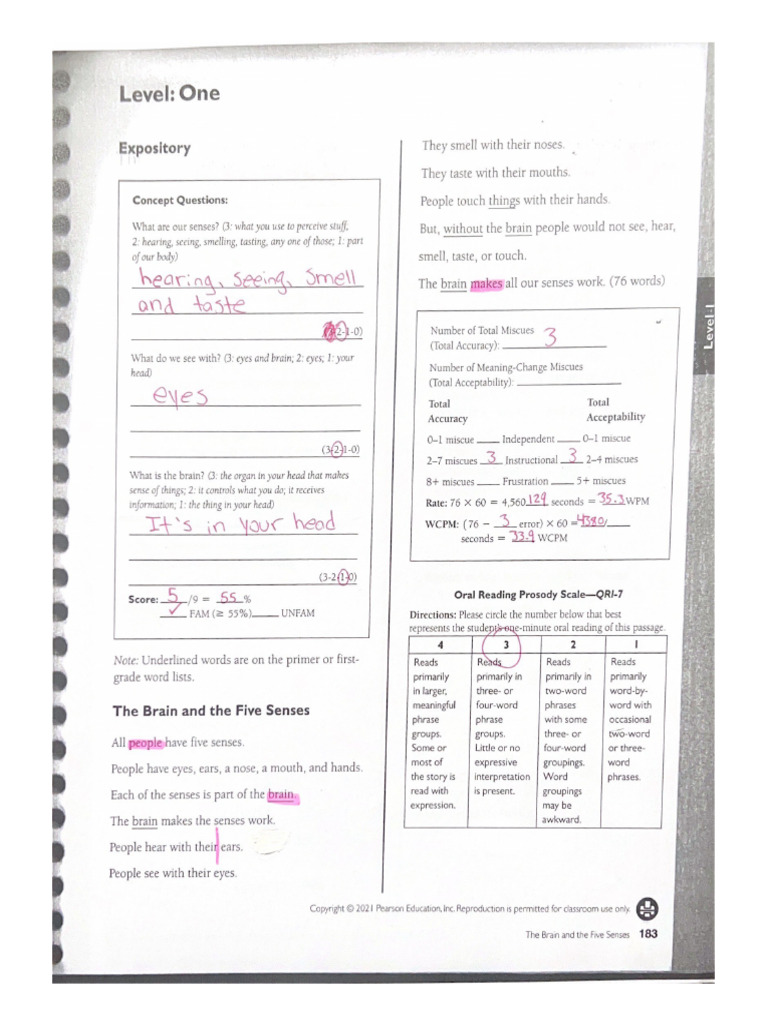 Level: One
Expository
Concept Questions:
What are our senses? (3: what you use to perceive stuff,
2: hearing, seeing, smelling, tasting, any one of those; 1: part
of our body)
hearing, seeing, smell
and taste
2-1-0)
What do we see with? (3: eyes and brain; 2: eyes; 1: your
head)
eyes
(3-2-1-0)
What is the brain? (3: the organ in your head that makes
sense of things; 2: it controls what you do; it receives
information; 1: the thing in your head)
It's in your head
(3-2-1-0)
Score: 5 /9 = 55 %
✓ FAM (≥ 55%) ____ UNFAM
Note: Underlined words are on the primer or first-
grade word lists.
The Brain and the Five Senses
All people have five senses.
People have eyes, ears, a nose, a mouth, and hands.
Each of the senses is part of the brain.
The brain makes the senses work.
People hear with their ears.
People see with their eyes.
They smell with their noses.
They taste with their mouths.
People touch things with their hands.
But, without the brain people would not see, hear,
smell, taste, or touch.
The brain makes all our senses work. (76 words)
Number of Total Miscues
(Total Accuracy): 3
Number of Meaning-Change Miscues
(Total Acceptability): ____
Total Total
Accuracy Acceptability
0–1 miscue ____ Independent ____ 0–1 miscue
2–7 miscues 3 Instructional 3 2–4 miscues
8+ miscues ____ Frustration ____ 5+ miscues
Rate: 76 × 60 = 4,560 129 seconds = 35.3 WPM
WCPM: (76 – 3 error) × 60 = 4380/____
seconds = 33.9 WCPM
Oral Reading Prosody Scale—QRI-7
Directions: Please circle the number below that best
represents the student's one-minute oral reading of this passage.
4 3 2 1
Reads Reads Reads Reads
primarily primarily in primarily in primarily
in larger, three- or two-word word-by-
meaningful four-word phrases word with
phrase phrase with some occasional
groups. groups. three- or two-word
Some or Little or no four-word or three-
most of expressive groupings. word
the story is interpretation Word phrases.
read with is present. groupings
expression. may be
awkward.
Copyright © 2021 Pearson Education, Inc. Reproduction is permitted for classroom use only.
The Brain and the Five Senses 183
Level-1